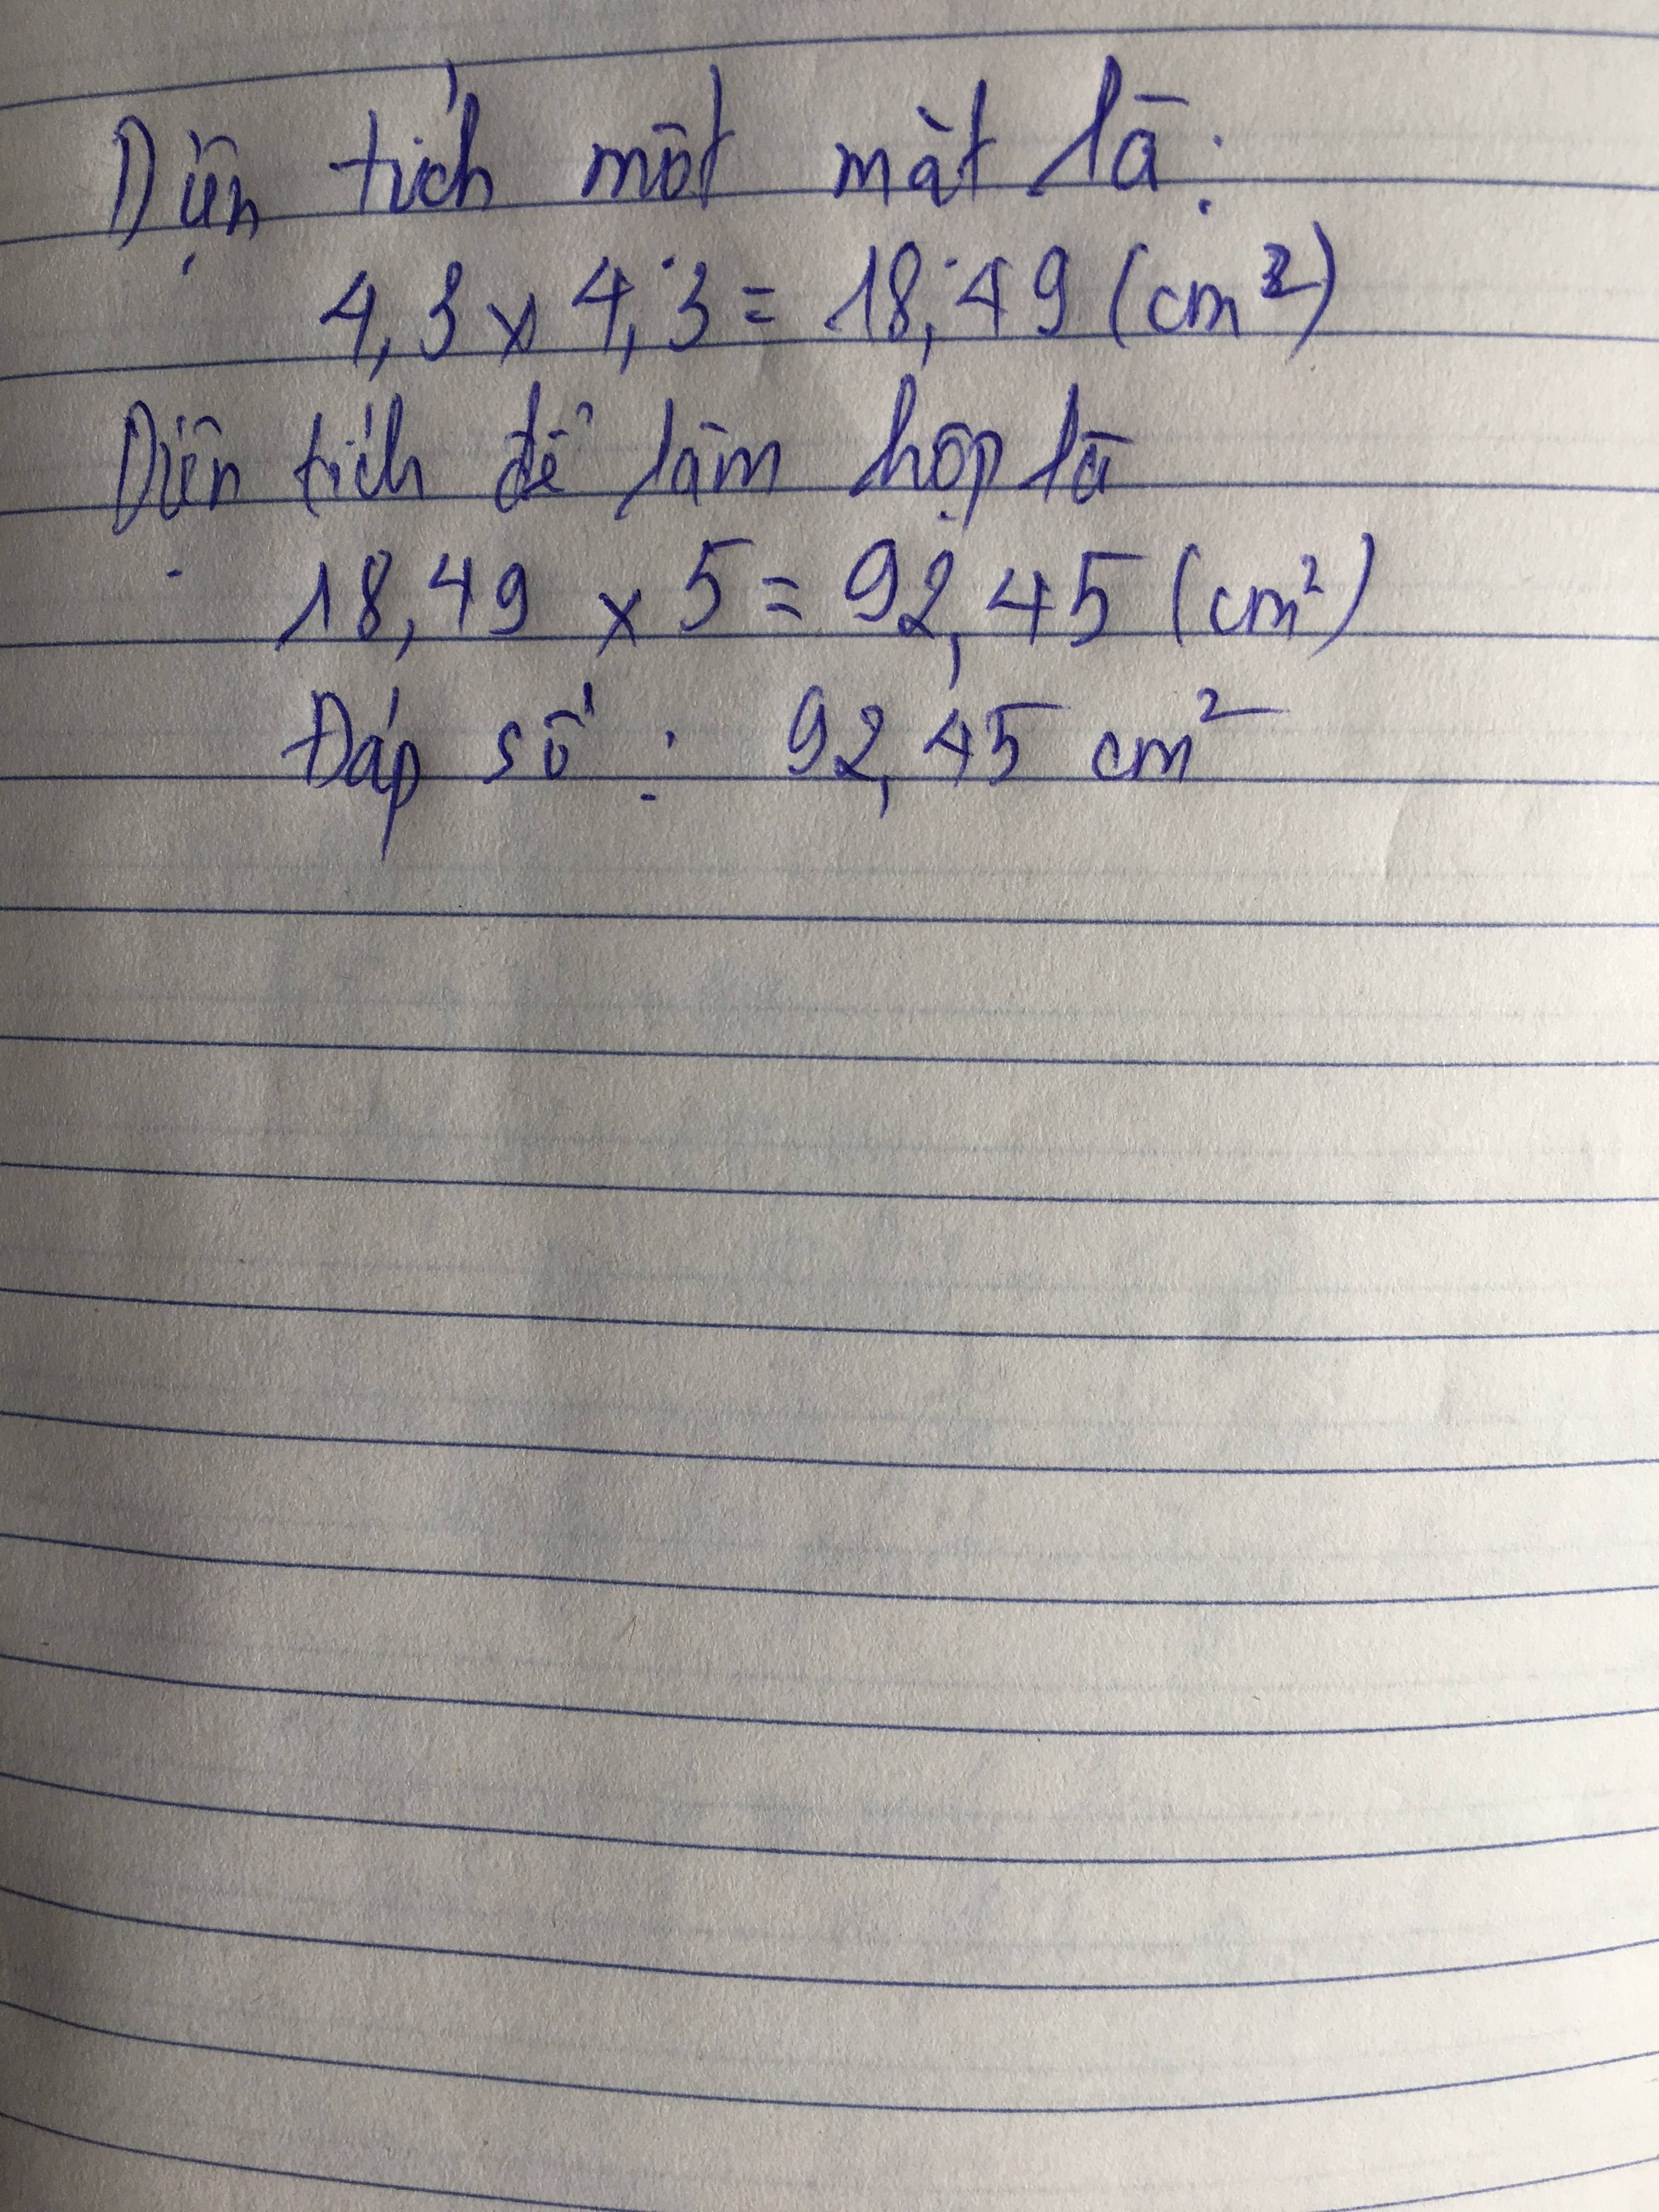 Diện tích một mặt là:
4,3 x 4,3 = 18,49 (cm²)
Diện tích để làm hộp là
18,49 x 5 = 92,45 (cm²)
Đáp số: 92,45 cm²